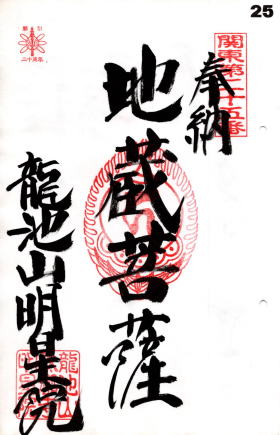 25
関東第二十五番
奉納
地蔵菩薩
龍池山明星院
二十周年